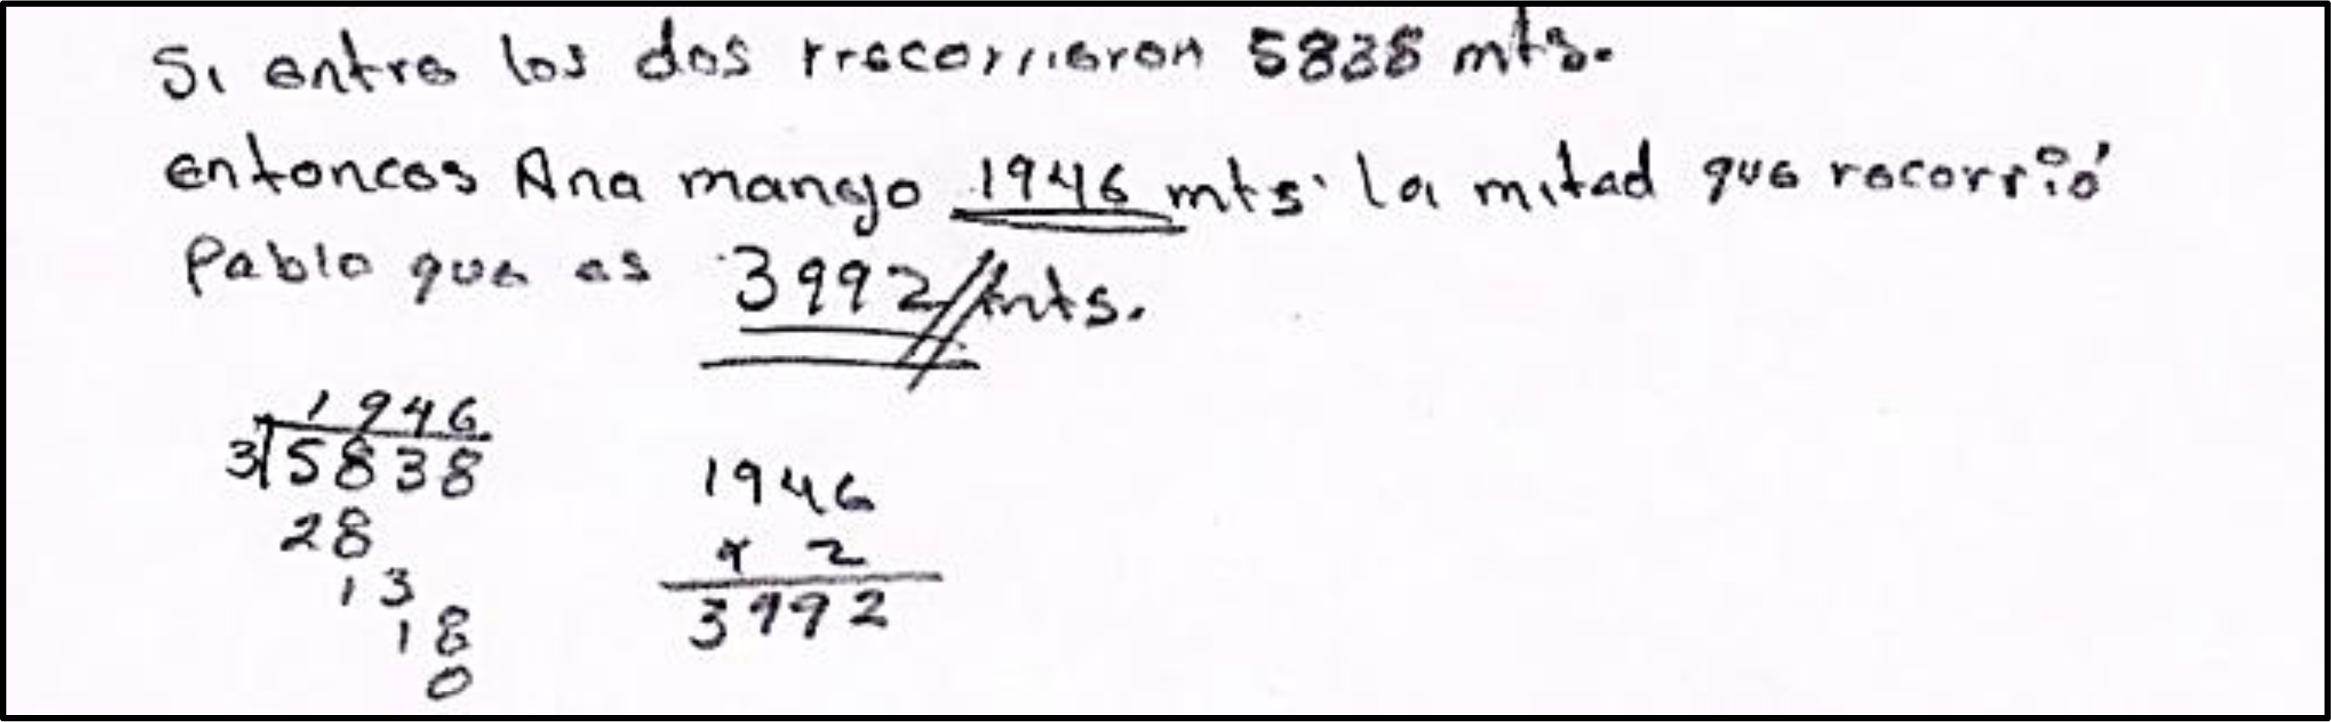 Si entre los dos rrecorrieron 5838 mts.
entonces Ana manejo 1946 mts. la mitad que recorrió
Pablo que es 3992//mts.
1946
3 5838
28
13
18
0
1946
x 2
3992